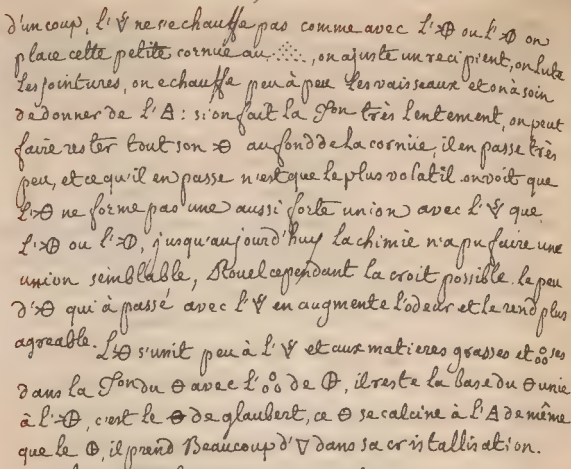 d'un coup, l'🜈 ne s'echauffe pas comme avec l'🜖 ou l'🜅 on
place cette petite cornue au ∴∴, on ajuste un recipient, on lute
les jointures, on echauffe peu à peu les vaisseaux et on à soin
de donner de l'🜁 : si on fait la ſon très lentement, on peut
faire rester tout son 🜔 au fond de la cornüe, il en passe très
peu, et ce qu'il en passe n'est que le plus volatil. on voit que
ne forme pas une aussi forte union avec l' que
l' ou l', jusqu'aujourd'huy la chimie n'a pu faire une
union semblable, Rouel cependant la croit possible. le peu
qui à passé avec l' en augmente l'odeur et le rend plus
agreable. s'unit peu à l' et aux matieres grasses et
dans la du ⊖ avec l' de, il reste la base du ⊖ unie
à l', c'est le ⊖ de glaubert, ce ⊖ se calcine à l'🜁 de même
que le, il prend Beaucoup d'▽ dans sa cristallisation.